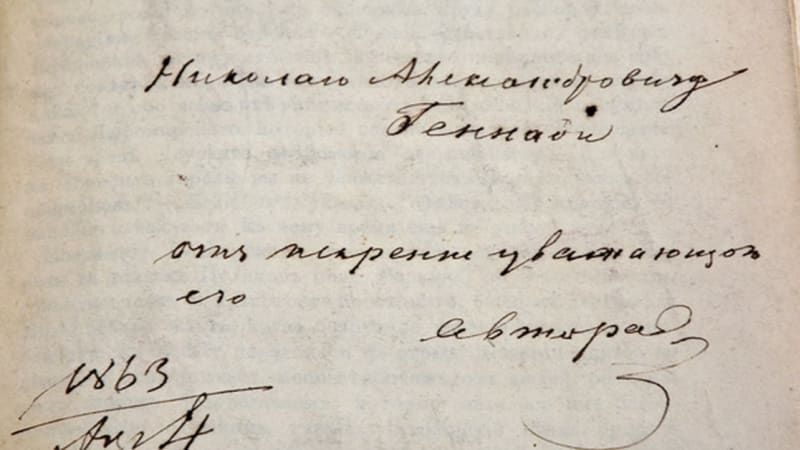 Николаю Александровичу
Геннади
отъ искренне уважающаго
его
автора
1863